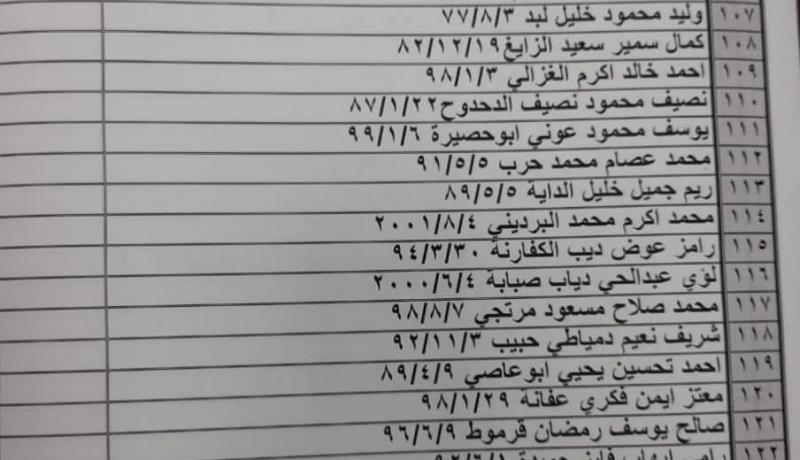 ١٠٧ وليد محمود خليل لبد ٧٧/٨/٣
١٠٨ كمال سمير سعيد الزايغ ٨٢/١٢/١٩
١٠٩ احمد خالد اكرم الغزالي ٩٨/١/٣
١١٠ نصيف محمود نصيف الدحدوح ٨٧/١/٢٢
١١١ يوسف محمود عوني ابوحصيرة ٩٩/١/٦
١١٢ محمد عصام محمد حرب ٩١/٥/٥
١١٣ ريم جميل خليل الداية ٨٩/٥/٥
١١٤ محمد اكرم محمد البرديني ٢٠٠١/٨/٤
١١٥ رامز عوض ديب الكفارنة ٩٤/٣/٣٠
١١٦ لؤي عبدالحي دياب صبابة ٢٠٠٠/٦/٤
١١٧ محمد صلاح مسعود مرتجي ٩٨/٨/٧
١١٨ شريف نعيم دمياطي حبيب ٩٢/١١/٣
١١٩ احمد تحسين يحيي ابوعاصي ٨٩/٤/٩
١٢٠ معتز ايمن فكري عفانة ٩٨/١/٢٩
١٢١ صالح يوسف رمضان قرموط ٩٦/٦/٩
١٢٢ رامي ايهاب